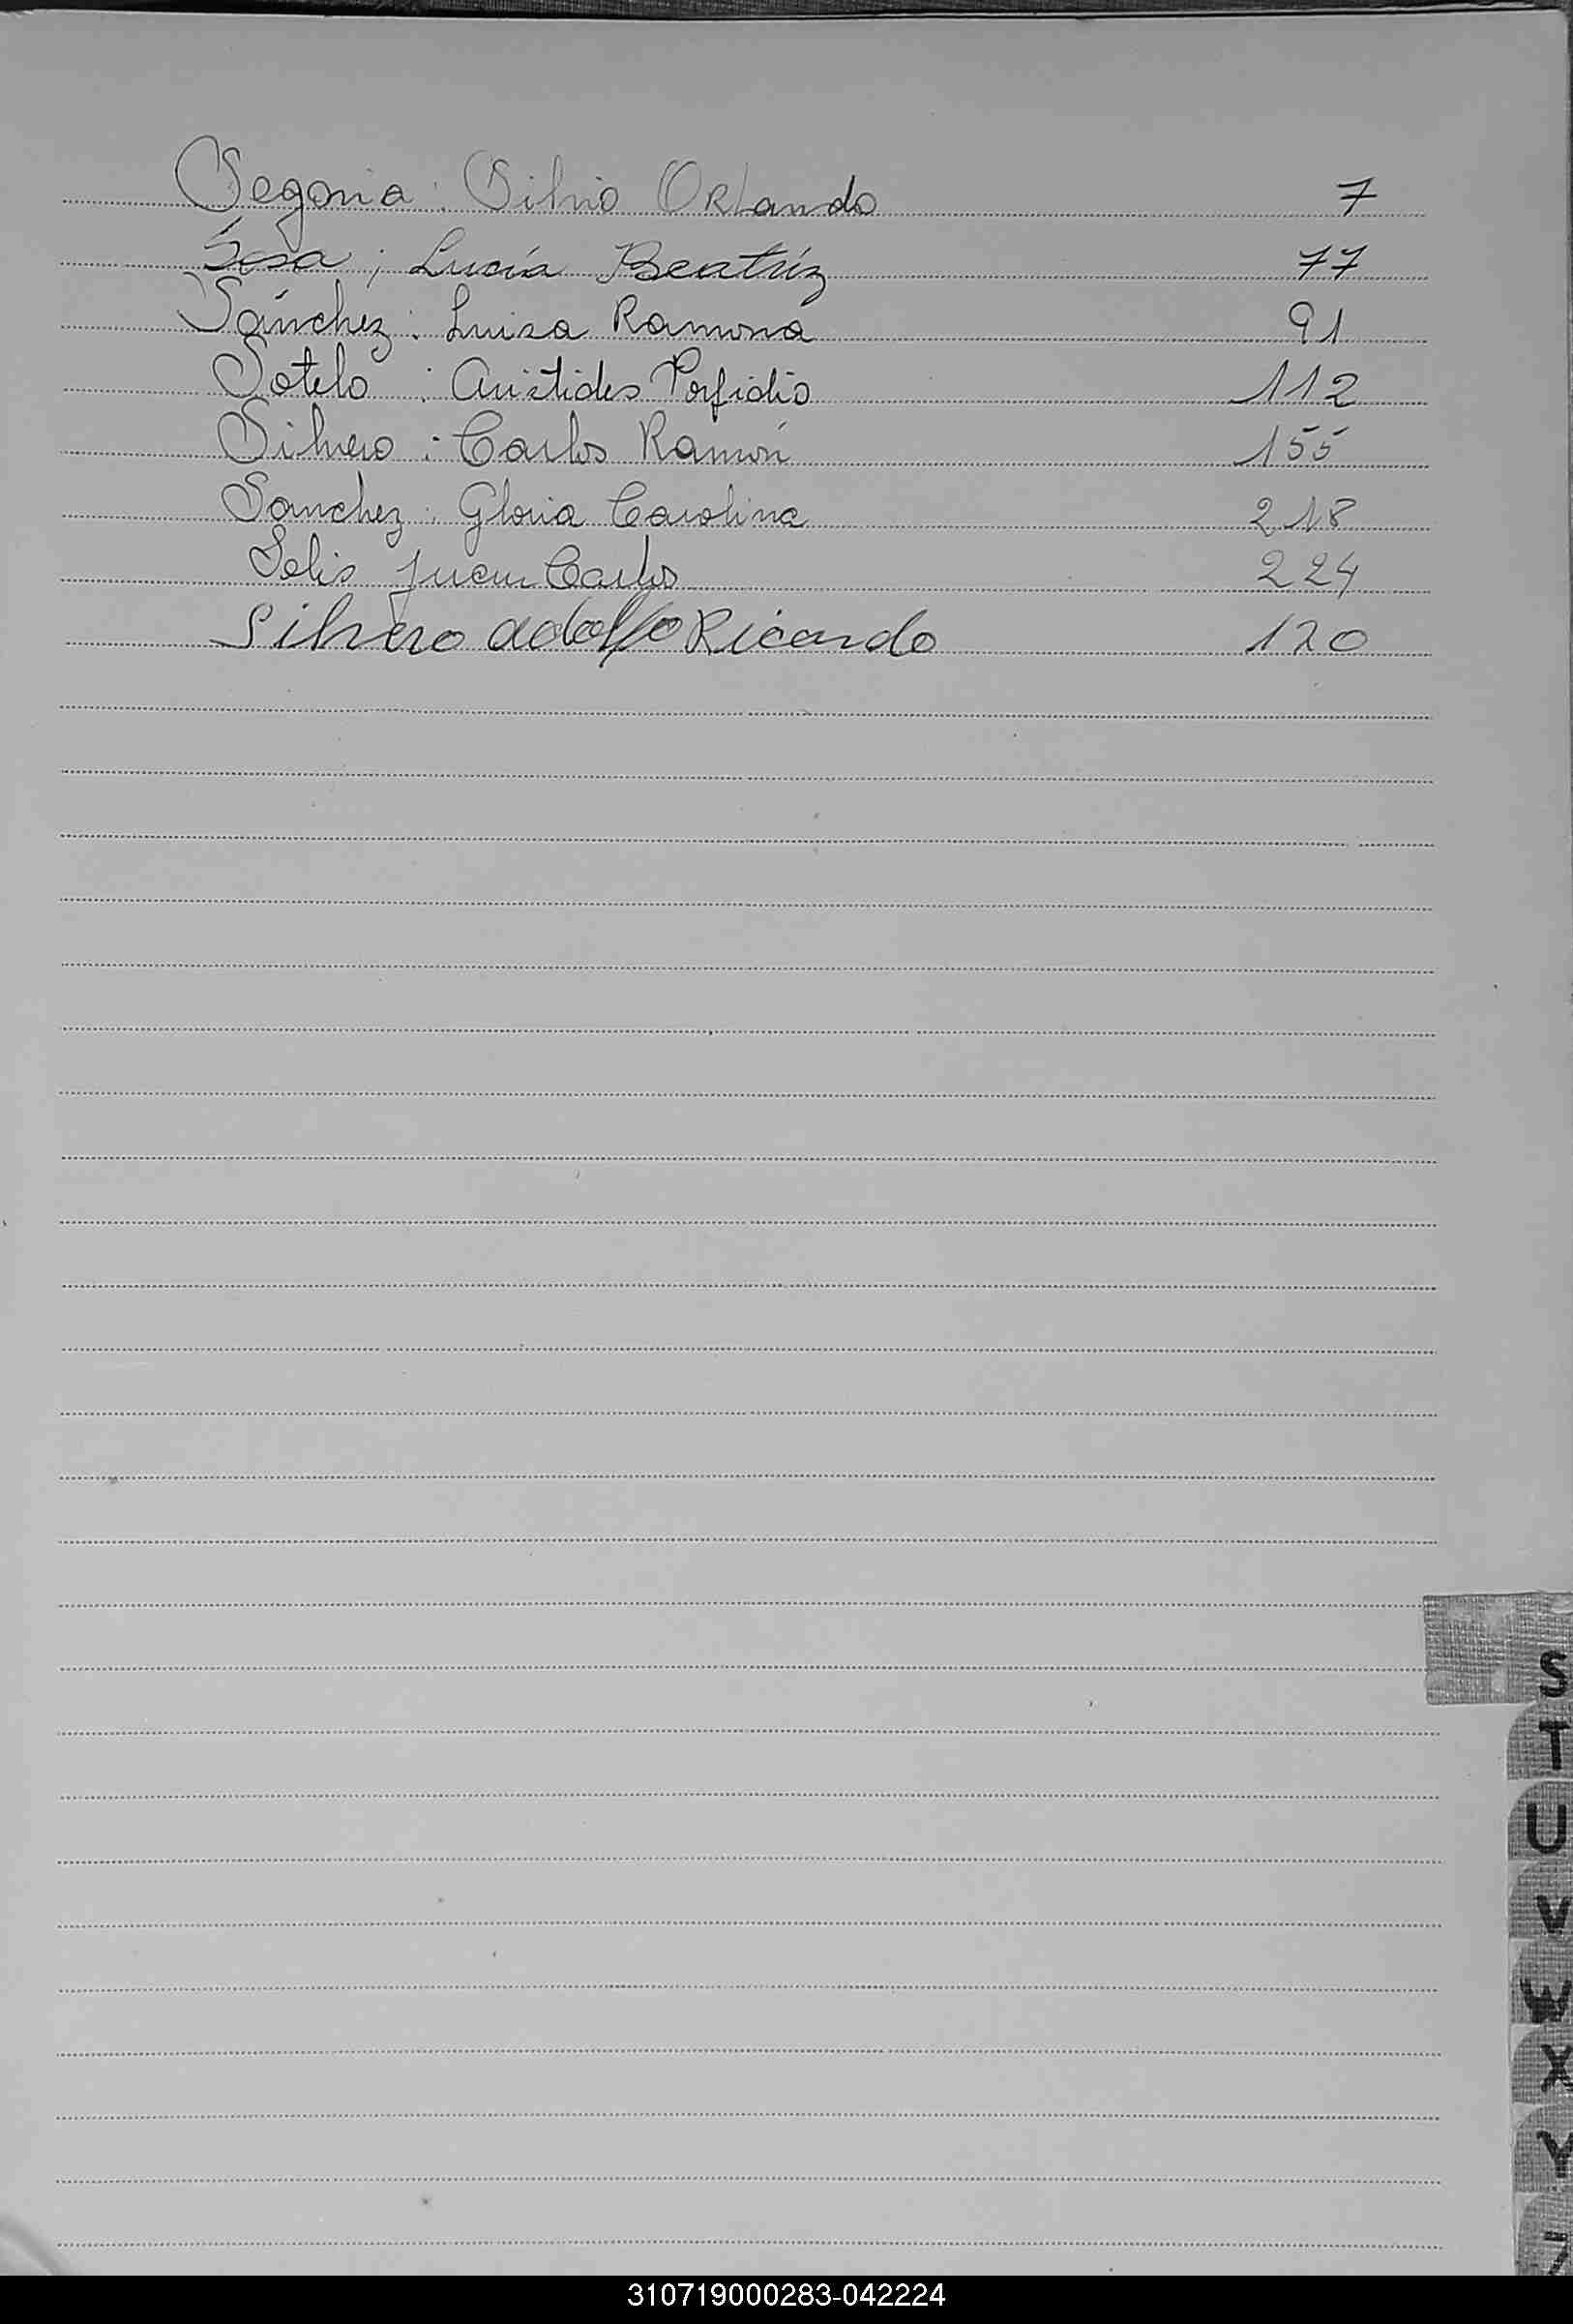 Segovia : Silvio Orlando 7
Sosa ; Lucía Beatríz 77
Sánchez : Luisa Ramona 91
Sotelo : Aristides Porfidio 112
Silvero : Carlos Ramón 155
Sanchez : Gloria Carolina 218
Solis Juan Carlos 224
Silvero Adolfo Ricardo 120
S
T
U
V
W
X
Y
Z
310719000283-042224